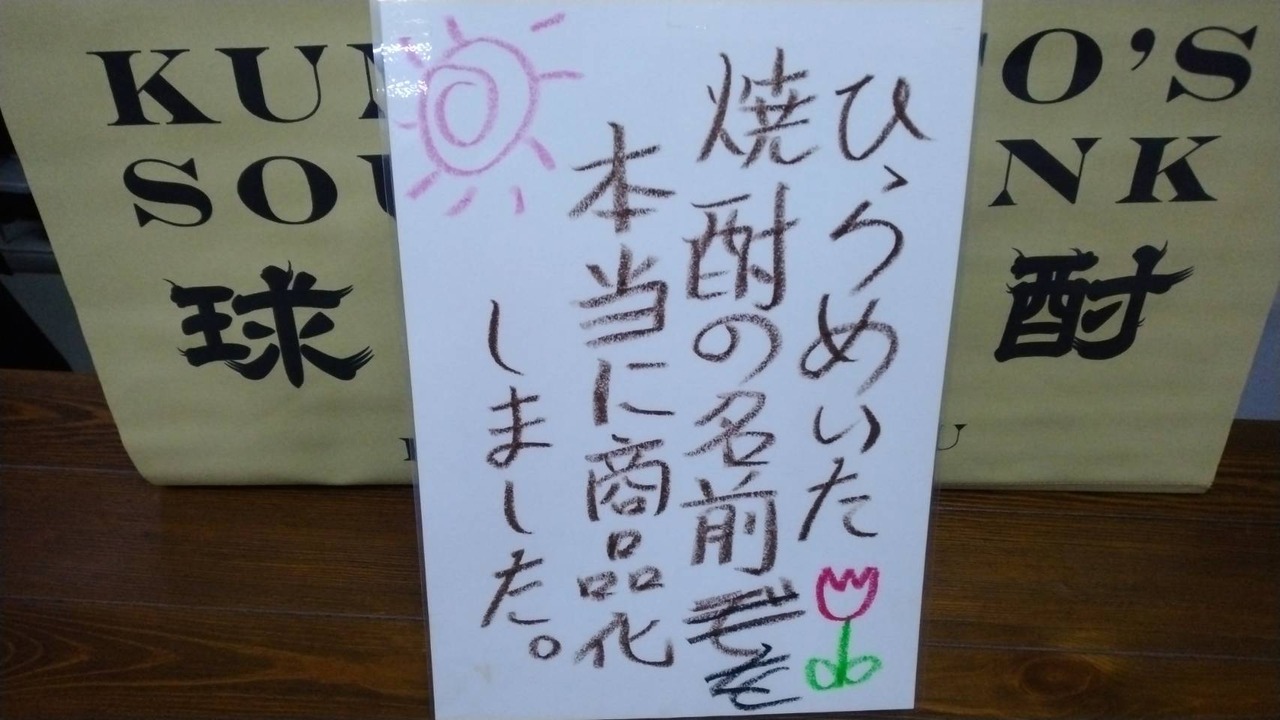 ひらめいた
焼酎の名前を
本当に商品化
しました。
KUN
O'S
SOU
NK
球
酎
U